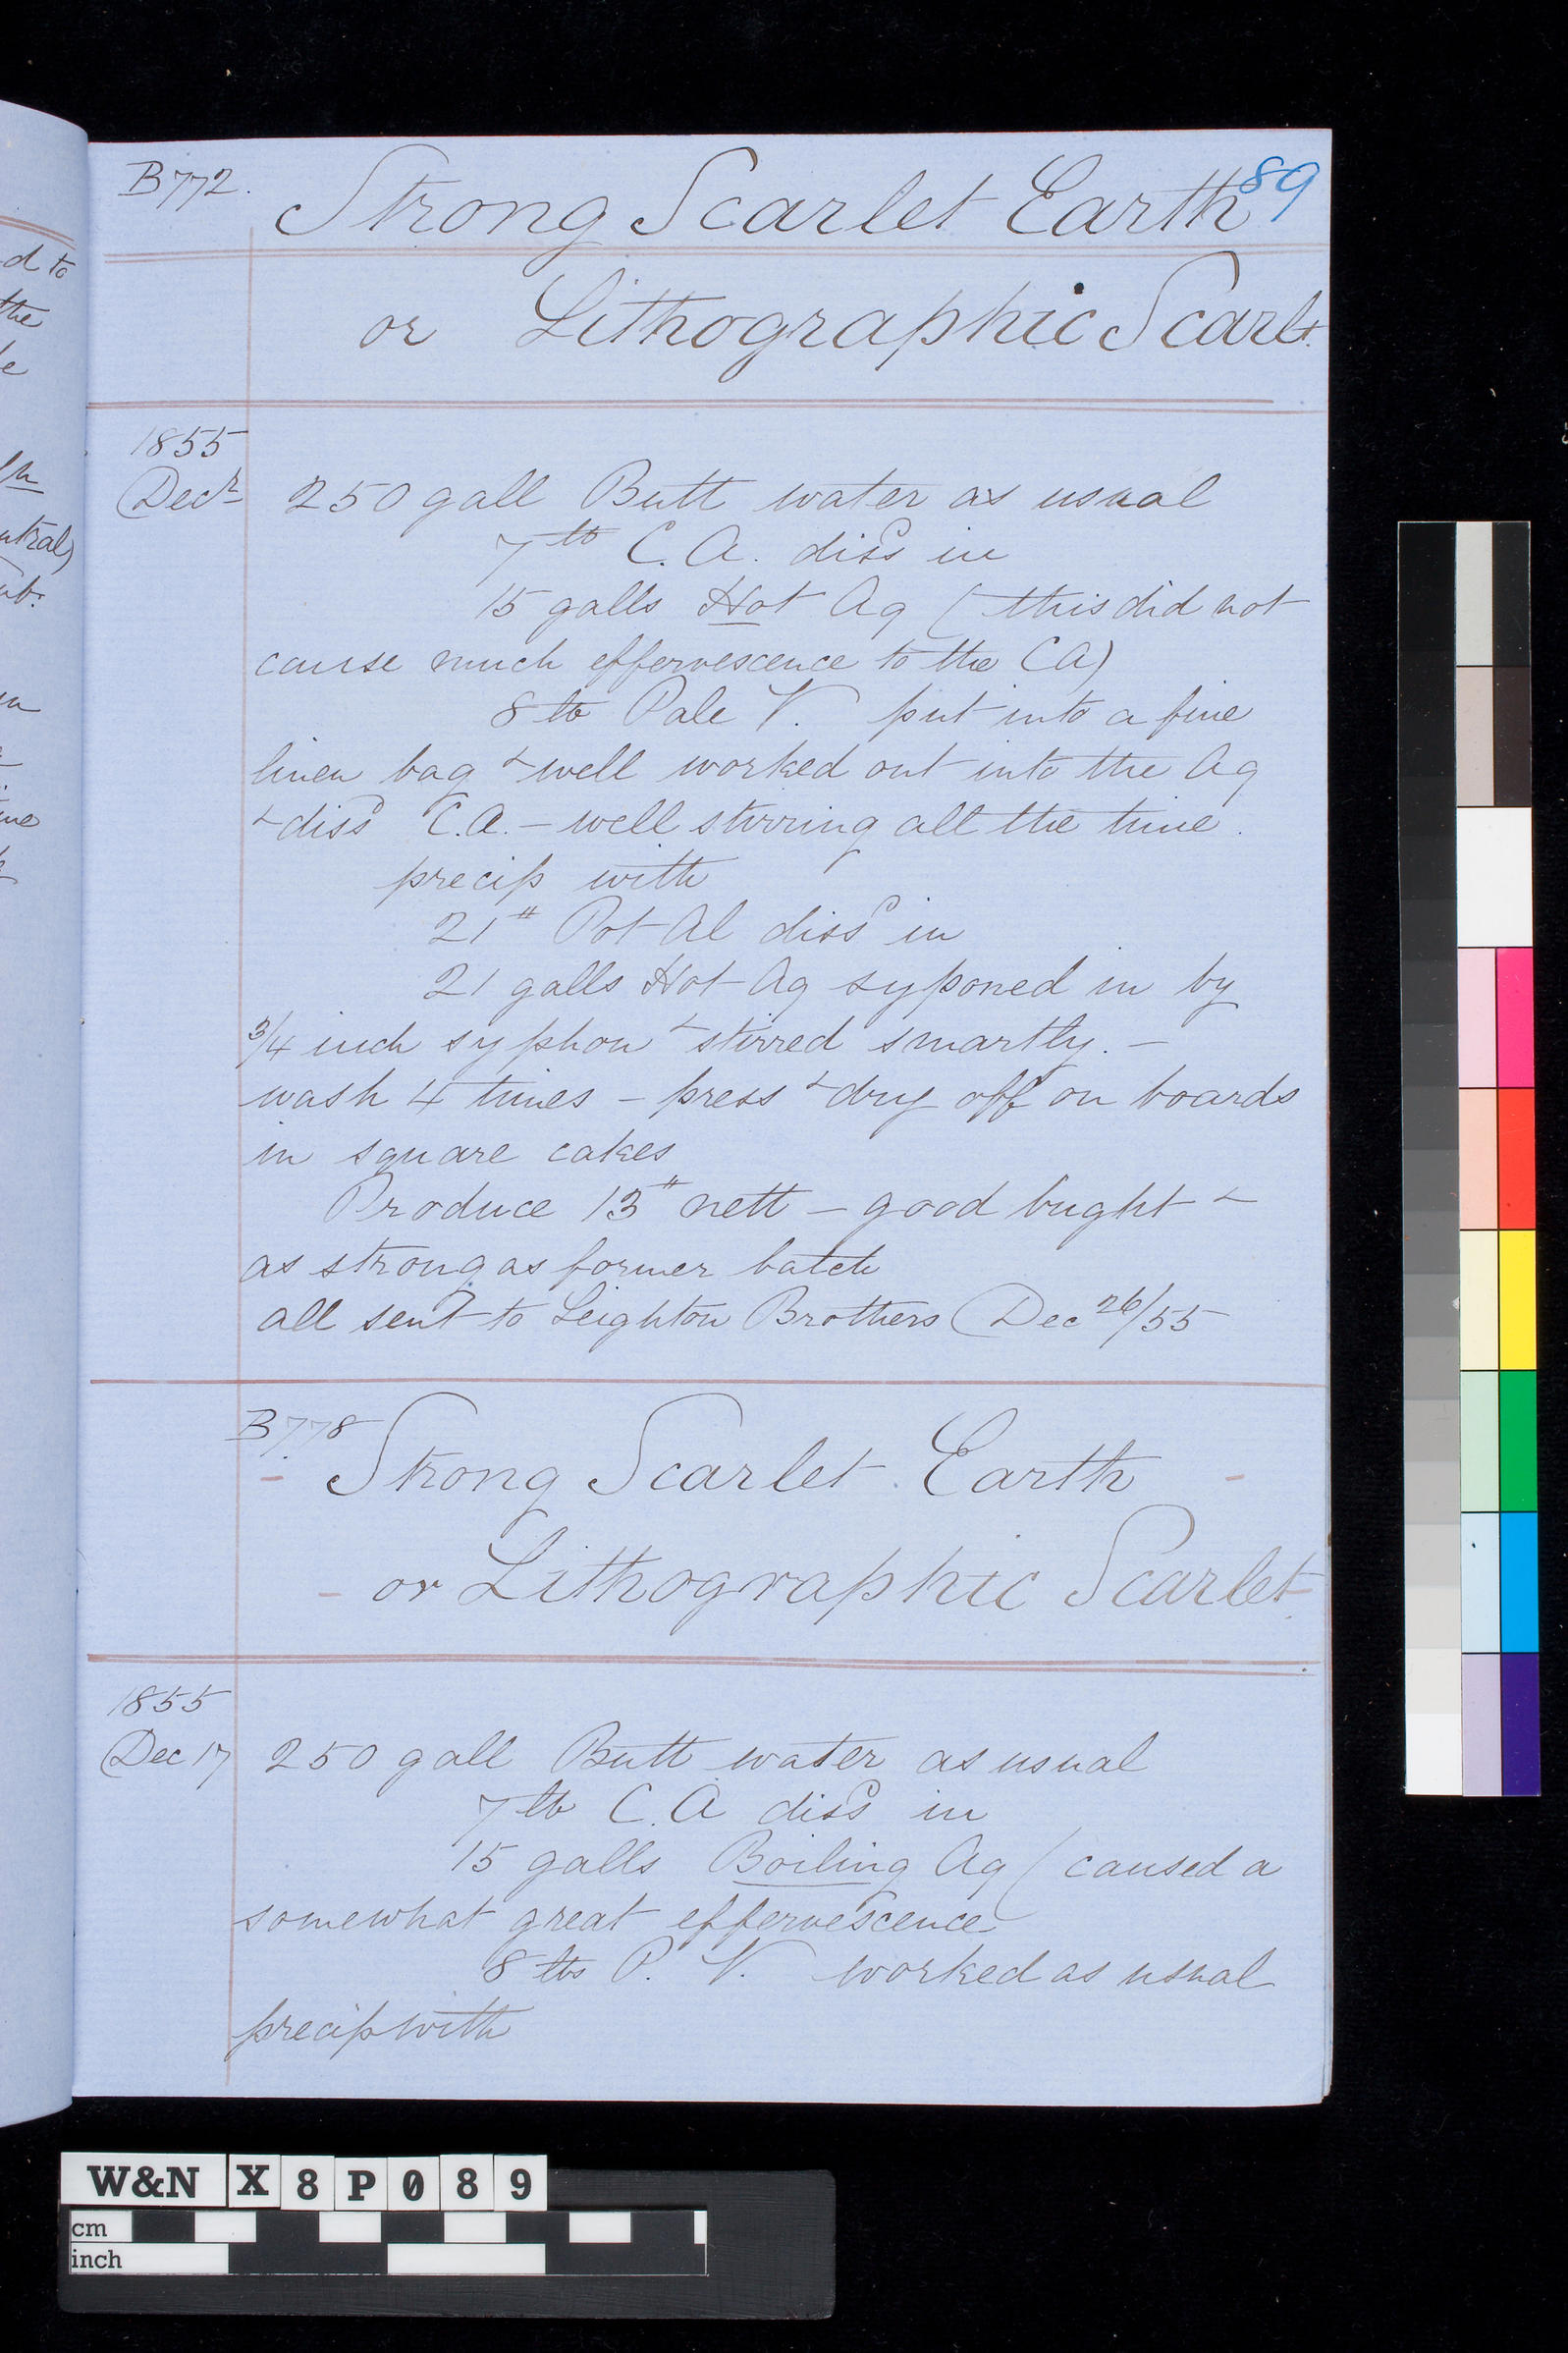 B772. Strong Scarlet Earth 89
or Lithographic Scarlt.
1855
Decr 250 gall Butt water as usual
7 lb C.A. dissd in
15 galls Hot Aq (this did not
cause much effervescence to the CA)
8 lb Pale V. put into a fine
linen bag & well worked out into the Aq
& dissd C.A. – well stirring all the time.
precip with
21 # Pot Al dissd in
21 galls Hot Aq syponed in by
3/4 inch syphon & stirred smartly. –
wash 4 times – press & dry off on boards
in square cakes
Produce 13 # nett – good bright &
as strong as former batch
all sent to Leighton Brothers Dec 26/55
B778
- Strong Scarlet Earth -
- or Lithographic Scarlet.
1855
Dec 17 250 gall Butt water as usual
7 lb C.A dissd in
15 galls Boiling Aq (caused a
somewhat great effervescence
8 lbs P. V. worked as usual
precip with
d to
the
e
utral)
W&N X 8 P 0 8 9
cm
inch